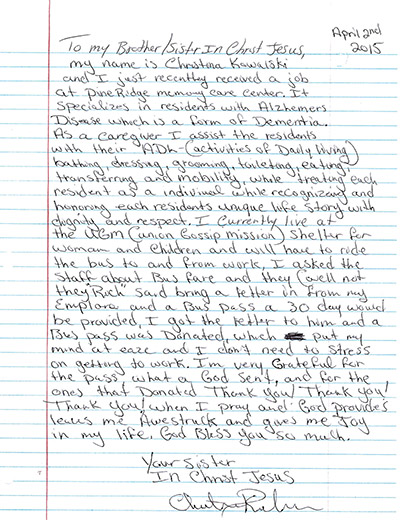 April 2nd
2015
To my Brother/Sistr In Christ Jesus,
my name is Christina Kowalski
and I just recently received a job
at pine Ridge memory care center. It
specializes in residents with Alzhemers
Disease which is a form of Dementia.
As a caregiver I assist the residents
with their ADL- (activities of Daily living)
bathing, dressing, grooming, toileting, eating,
transferring and mobility, while treating each
resident as a indiviual while recognizing and
honoring each residents unique life story with
dignity and respect. I currently live at
the UGM (union Gossip mission) Shelter for
woman and Children and will have to ride
the bus to and from work, I asked the
staff about Bus fare and they (well not
they "Rich" said bring a letter in from my
Employer and a Bus pass a 30 day would
be provided, I got the letter to him and a
Bus pass was Donated, which put my
mind at eaze and I don't need to stress
on getting to work. I'm very, Grateful for
the pass, what a God sent, and for the
ones that Donated Thank you! Thank you!
Thank you! when I pray and God provides
leaves me Awestruck and gives me Joy
in my life. God Bless you so much.
Your Sister
In Christ Jesus